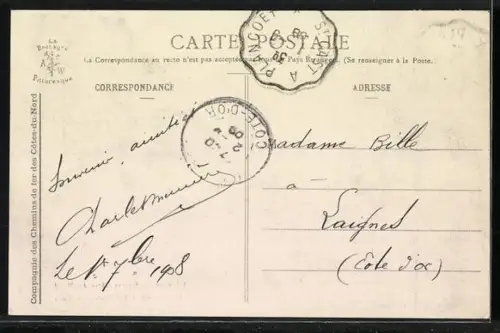 La
Bretagne
A W
Pittoresque
CARTE POSTALE
La Correspondance au recto n'est pas acceptée Pays Étrangers. (Se renseigner à la Poste.)
CORRESPONDANCE
ADRESSE
Compagnie des Chemins de fer des Côtes-du-Nord
PLANCOET A ST CAST
COTE-D'OR
Souvenir, amitiés
Le 1er 7bre 1908
Madame Bille
à
Laignes
(Côte d'or)